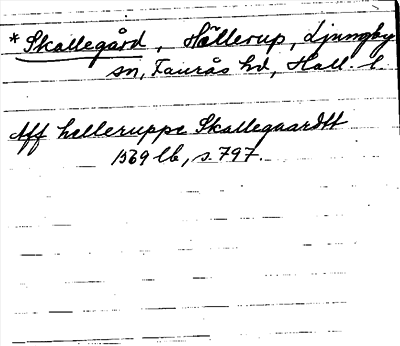 * Skallegård, Hällerup, Ljungby
sn, Faurås hd, Hall. l.
Aff helleruppe Skallegaardtt
1569 lb, s. 797.